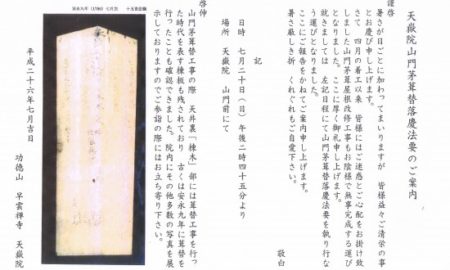 天嶽院山門茅葺替落慶法要のご案内
謹啓
暑さが日ごとに加わってまいりますが 皆様益々ご清栄の事
とお慶び申し上げます。
さて 四月の着工以来 皆様にはご迷惑とご心配をお掛け致
しました山門茅葺屋根改修工事もお陰様で無事完成する運び
となりました。ここに厚く御礼申し上げます。
就きましては 左記日程にて山門茅葺替落慶法要を執り行な
う運びとなりました。
ここにご報告をかねてご案内申し上げます。
暑さ厳しき折 くれぐれもご自愛下さい。
敬白
記
日時 七月二十日(日)午後二時四十五分より
場所 天嶽院 山門前にて
啓伸
山門茅葺替工事の際 天井裏「棟木」部には葺替工事を行っ
た時代を表す棟板も残されており、古くは安永九年に葺替を
行ったことも確認できました。院内にその他多数の写真を展
示しておりますのでご参詣の際にはお立ち寄り下さい。
安永九年(1780)
平成二十六年七月吉日
功徳山 早雲禅寺 天嶽院